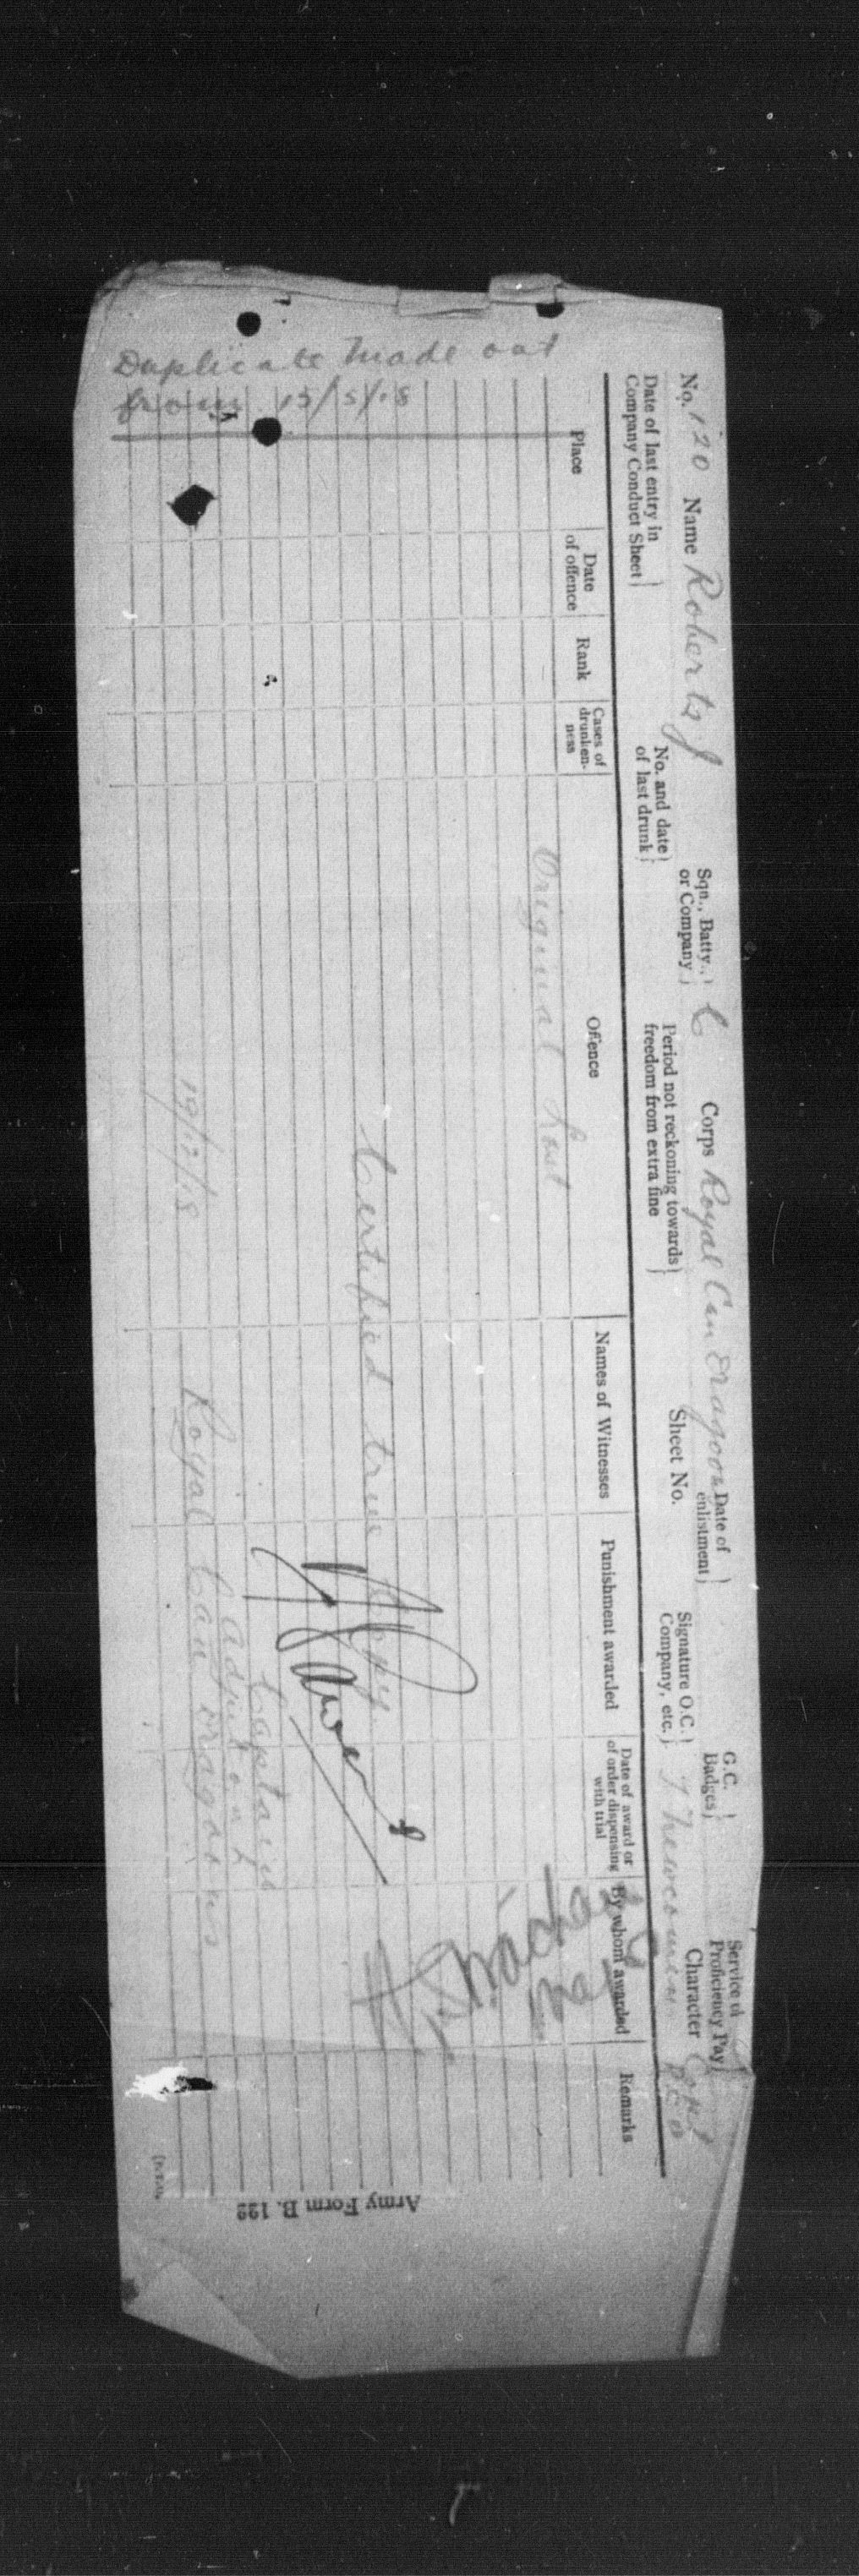 Duplicate made out
from 15/5/18
No. 120 Name Roberts J Sqn., Batty., or Company C Corps Royal Can Dragoons Date of enlistment G.C. Badges Service or Proficiency Pay
Date of last entry in Company Conduct Sheet No. and date of last drunk Period not reckoning towards freedom from extra fine Sheet No. Signature O.C. Company, etc. Character
Place Date of offence Rank Cases of drunken-ness Offence Names of Witnesses Punishment awarded Date of award or of order dispensing with trial By whom awarded Remarks
Original Lost
Certified true copy
Captain
Adjutant
19/12/18 Royal Can Dragoons
Army Form B. 122